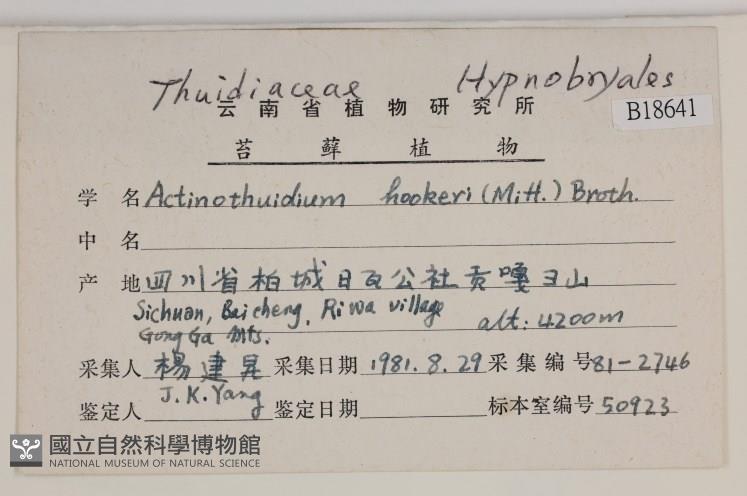 Thuidiaceae Hypnobryales
云南省植物研究所
B18641
苔藓植物
学名 Actinothuidium hookeri (Mitt.) Broth.
中名
产地 四川省柏城日瓦公社贡嘎ヨ山
Sichuan, Baicheng, Riwa village
Gong Ga Mts. alt: 4200m
采集人 楊建昆 采集日期 1981.8.29 采集编号 81-2746
J.K.Yang
鉴定人 鉴定日期 标本室编号 50923
國立自然科學博物館
NATIONAL MUSEUM OF NATURAL SCIENCE